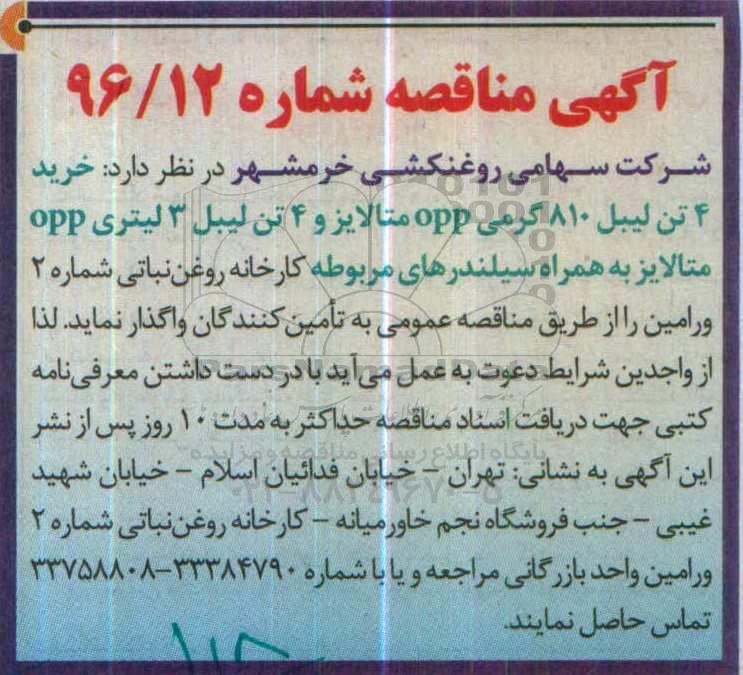 آگهی مناقصه شماره ۹۶/۱۲
شرکت سهامی روغنکشی خرمشهر در نظر دارد: خرید
۴ تن لیبل ۸۱۰ گرمی opp متالایز و ۴ تن لیبل ۳ لیتری opp
متالایز به همراه سیلندرهای مربوطه کارخانه روغن‌نباتی شماره ۲
ورامین را از طریق مناقصه عمومی به تأمین‌کنندگان واگذار نماید. لذا
از واجدین شرایط دعوت به عمل می‌آید با در دست داشتن معرفی‌نامه
کتبی جهت دریافت اسناد مناقصه حداکثر به مدت ۱۰ روز پس از نشر
این آگهی به نشانی: تهران – خیابان فدائیان اسلام – خیابان شهید
غیبی – جنب فروشگاه نجم خاورمیانه – کارخانه روغن‌نباتی شماره ۲
ورامین واحد بازرگانی مراجعه و یا با شماره ۳۳۳۸۴۷۹۰–۳۳۷۵۸۸۰۸
تماس حاصل نمایند.
ParsNamadData
پایگاه اطلاع رسانی مناقصه و مزایده
۰۲۱–۸۸۳۴۹۶۷۰–۵